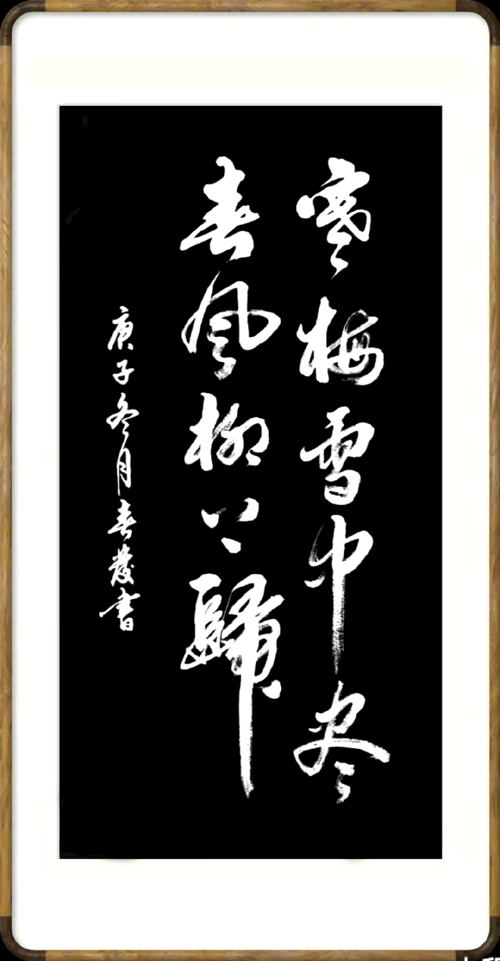 寒梅雪中尽
春风柳上歸
庚子冬月春发書